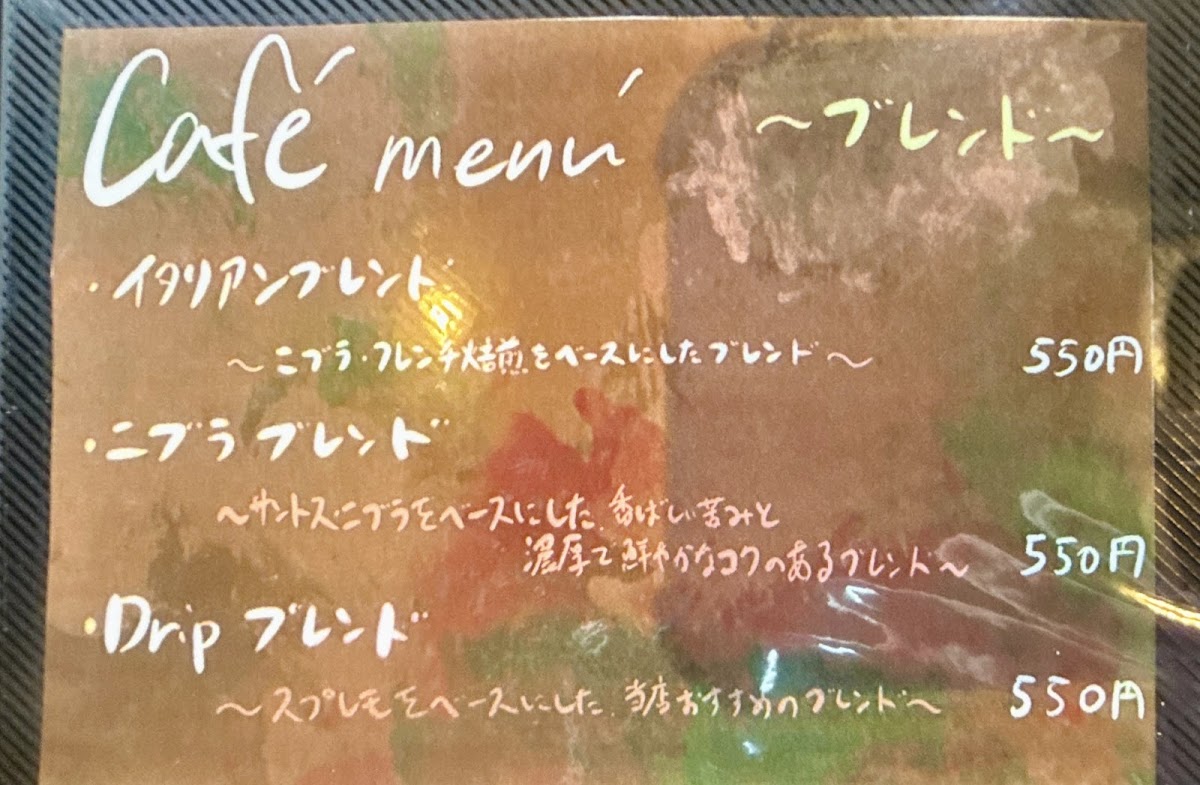 Café menú
～ブレンド～
・イタリアンブレンド
～ニブラ・フレンチ焙煎をベースにしたブレンド～ 550円
・ニブラブレンド
～サントス・ニブラをベースにした、香ばしい苦みと
濃厚で鮮やかなコクのあるブレンド～ 550円
・Drip ブレンド
～スプレモをベースにした、当店おすすめのブレンド～ 550円